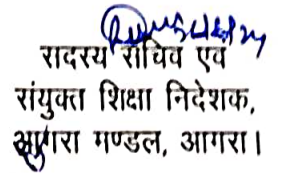 सदस्य सचिव एवं
संयुक्त शिक्षा निदेशक,
आगरा मण्डल, आगरा।